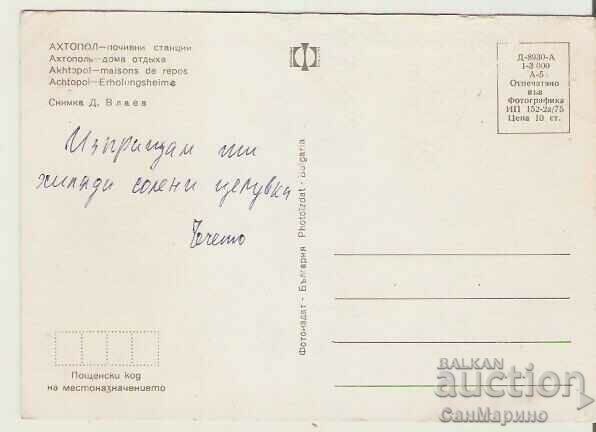 АХТОПОЛ—почивни станции
Ахтополь—дома отдыха
Akhtopol—maisons de repos
Achtopol—Erholungsheime
Снимка Д. Влаев
Изпращам ти
хиляди солени целувка
Пощенски код
на местоназначението
Фотоиздат - България Photoizdat - Bulgaria
Д-8930-А
1-3 000
А-5
Отпечатано
във
Фотографика
ИП 152-2а/75
Цена 10 ст.
BALKAN
auction
СанМарино